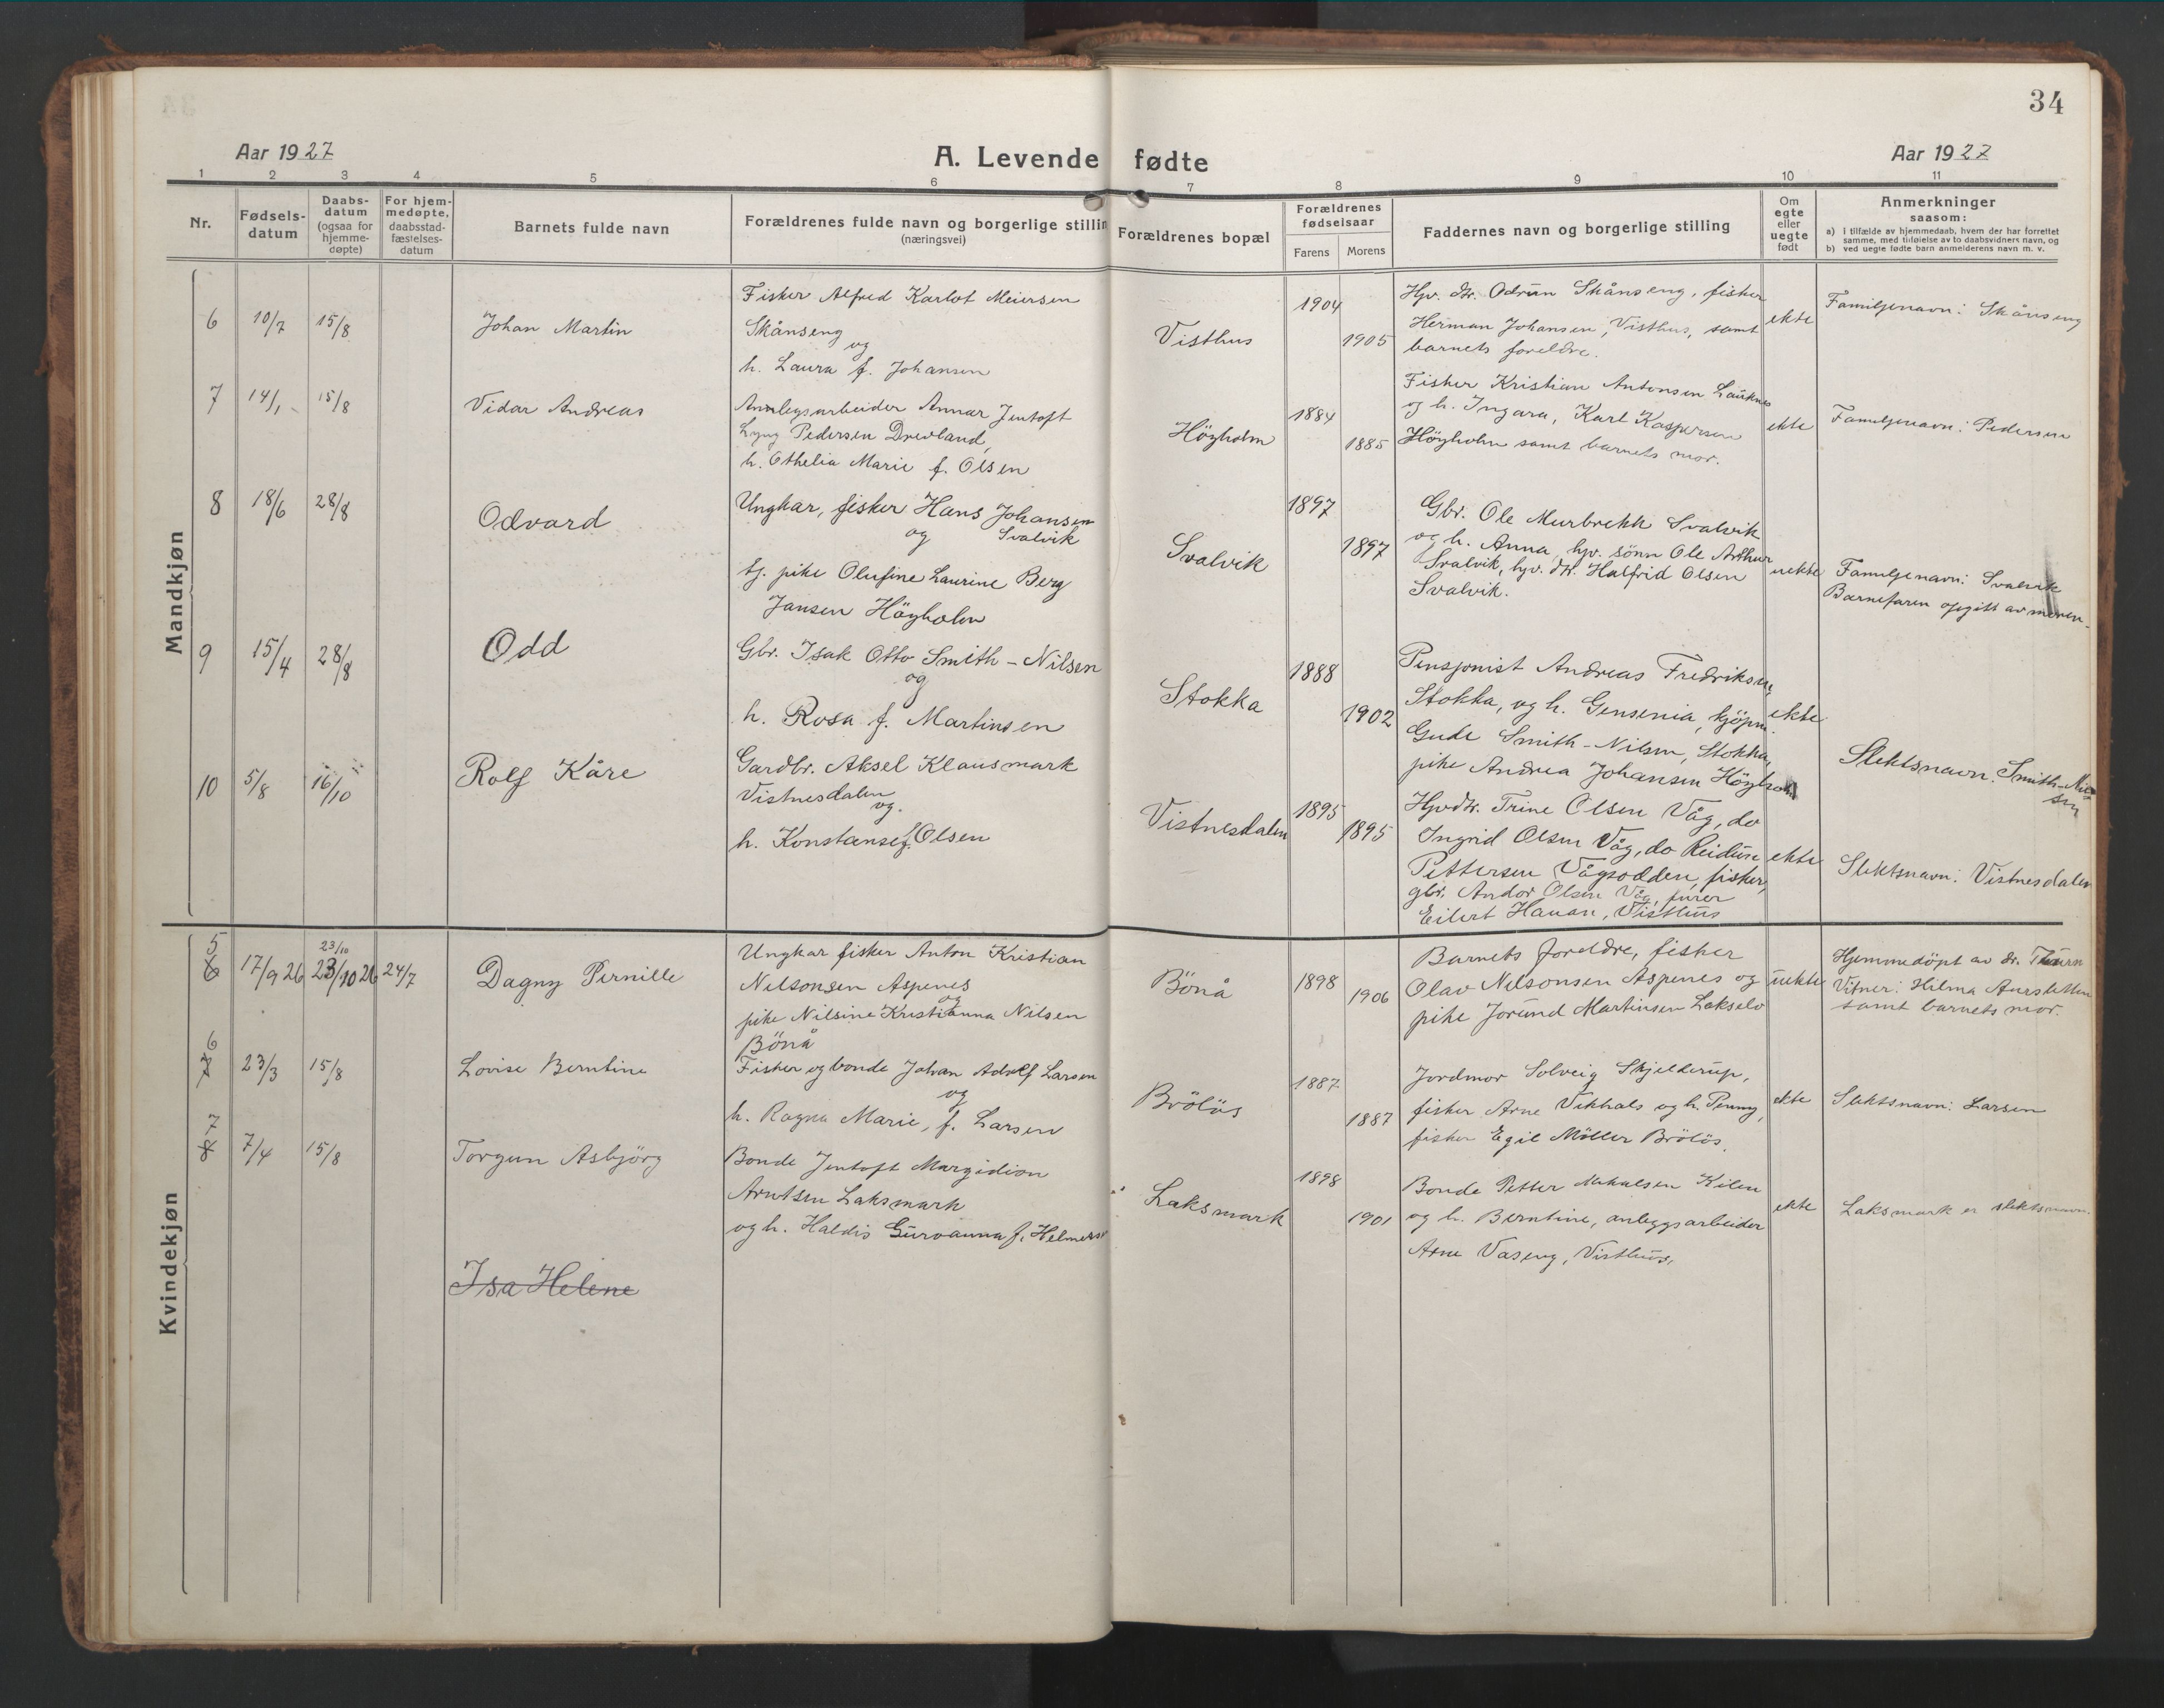 34
Aar 1927
A. Levende fødte
Aar 1927
1 2 3 4 5 6 7 8 9 10 11
Nr.
Fødsels-
datum
Daabs-
datum
(ogsaa for
hjemme-
døpte)
For hjem-
medøpte,
daabsstad-
fæstelses-
datum
Barnets fulde navn
Forældrenes fulde navn og borgerlige stillin
(næringsvei)
Forældrenes bopæl
Forældrenes
fødselsaar
Farens Morens
Faddernes navn og borgerlige stilling
Om
egte
eller
uegte
født
Anmerkninger
saasom:
a) i tilfælde av hjemmedaab, hvem der har forrettet
samme, med tilføielse av to daabsvidners navn, og
b) ved uegte fødte barn anmelderens navn m. v.
Mandkjøn
6 10/7 15/8 Johan Martin
Fisker Alfred Karlot Meiersen
Skånseng
og
h. Laura f. Johansen
Visthus
1904
1905
Hpv. dtr. Odrun Skånseng, fisker
Herman Johansen, Visthus, samt
barnets foreldre.
ekte
Familjenavn: Skånseng
7 14/1 15/8 Vidar Andreas
Anlegsarbeider Annar Jentoft
Lyng Pedersen Drevland,
h. Othelia Marie f. Olsen
Höyholm
1884
1885
Fisker Kristian Antonsen Lauknes
og h. Ingara, Karl Kaspersen
Höyholm samt barnets mor.
ekte
Familjenavn: Pedersen
8 18/6 28/8 Odvard
Ungkar, fisker Hans Johansen
og Svalvik
tj. pike Olufine Laurine Berg
Jansen Höyholm
Svalvik
1897
1897
Gbr. Ole Murbrekk Svalvik
og h. Anna, hpv. sönn Ole Arthur
Svalvik, hpv. dtr. Halfrid Olsen
Svalvik.
uekte
Familjenavn: Svalvik
Barnefaren opgitt av moren.
9 15/4 28/8 Odd
Gbr. Isak Otto Smith-Nilsen
og
h. Rosa f. Martinsen
Stokka
1888
1902
Pensjonist Andreas Fredriksen,
Stokka, og h. Gensenia, kjöpm.
Gude Smith-Nilsen, Stokka,
pike Andrea Johansen Höyholm
ekte
Slektsnavn: Smith-Nil-
sen
10 5/8 16/10 Rolf Kåre
Gardbr. Aksel Klausmark
Vistnesdalen
og.
h. Konstanse f. Olsen
Vistnesdalen
1895
1895
Hpvdtr. Trine Olsen Våg, do
Ingrid Olsen Våg, do Reidun
Pettersen Vågsodden, fisker,
gbr. Andor Olsen Våg, furer
Eilert Hauan, Visthus
ekte
Slektsnavn: Vistnesdalen
Kvindekjøn
5
6 17/9 26 23/10 26 24/7 Dagny Pernille
23/10
Ungkar fisker Anton Kristian
Nelsonsen Aspenes
og
pike Nilsine Kristianna Nilsen
Bönå
Bönå
1898
1906
Barnets foreldre, fisker
Olav Nelsonsen Aspenes og
pike Jorund Martinsen Lakselv
uekte
Hjemmedöpt av dr.
Vitner: Hilma Aursletten
samt barnets mor.
6
7 23/3 15/8 Lovise Berntine
Fisker og bonde Johan Adolf Larsen
og
h. Ragna Marie, f. Larsen
Brölös
1887
1887
Jordmor Solveig Skjelderup,
fisker Arne Vikhals og h. Penny,
fisker Egil Möller Brölös.
ekte
Slektsnavn: Larsen
7
8 7/4 15/8 Torgun Asbjörg
Bonde Jentoft Margidion
Arntsen Laksmark
og h. Haldis Gurvanna f. Helmers
Laksmark
1898
1901
Bonde Petter Mikalsen Kilen
og h. Berntine, anleggsarbeider
Arne Vaseng, Visthus.
ekte
Laksmark er slektsnavn.
Isa Helene